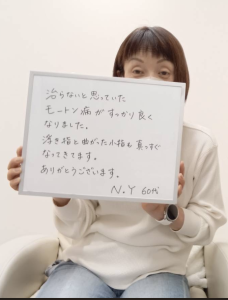 治らないと思っていた
モートン病がすっかり良く
なりました。
浮き指と曲がった小指も真っすぐ
なってきてます。
ありがとうございます。
N.Y 60代